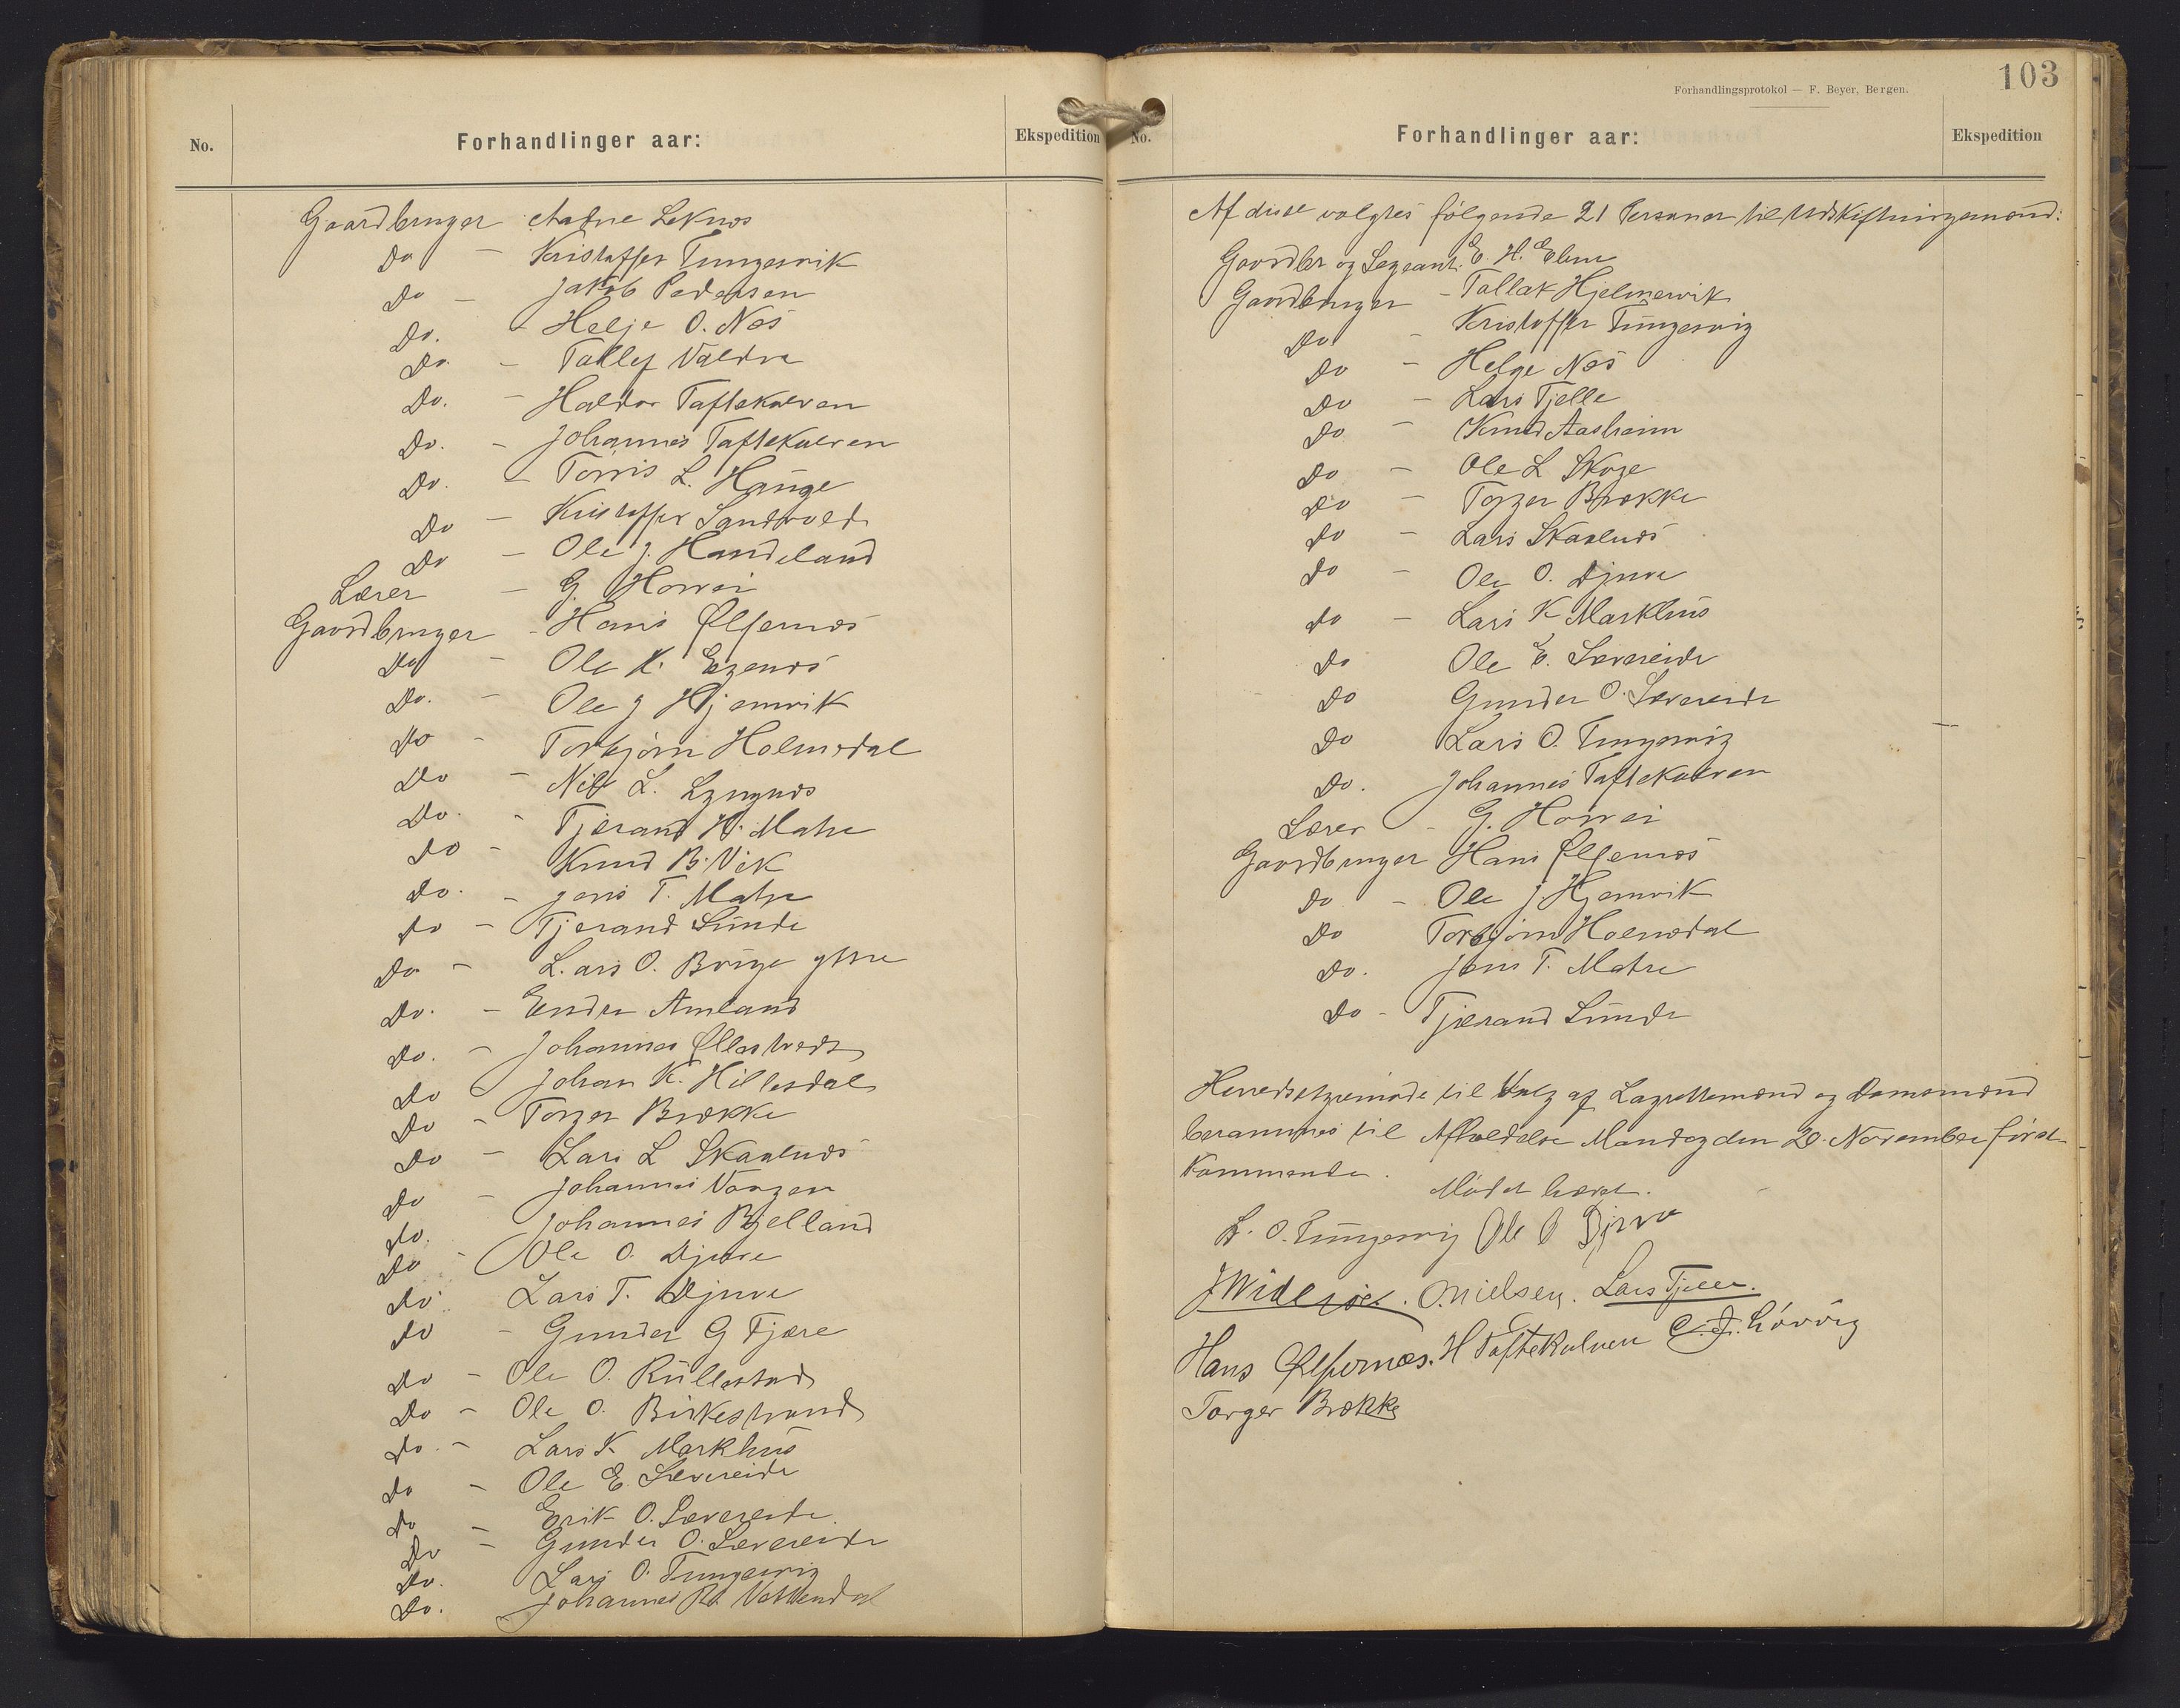 No.
Forhandlinger aar:
Ekspedition
Gaardbruger Aadne Leknes
Do - Kristoffer Tungesvik
Do - Jakob Pedersen
Do. - Helje O. Næs
Do - Tallef Valdra
Do. - Haldor Taftekalven
Do. - Johannes Taftekalven
Do. - Torris L. Hauge
Do - Kristoffer Sandvold
Do - Ole J. Handeland
Lærer - G. Horvei
Gaardbruger - Hans Ølfernes
Do - Ole K. Egenæs
Do. - Ole J Hjemvik
Do - Torbjørn Holmedal
Do - Nils L. Lyngnæs
Do. - Tjerand H. Matre
Do - Knud B. Vik
Do. - Jens T. Matre
Do - Tjerand Sunde
Do - Lars O. Børge ytre
Do. - Endre Amland
Do. - Johannes Øllestvedt
Do Johan K. Hillesdal
Do - Torger Brække
Do - Lars L Skaalnæs
Do - Johannes Vaagen
Do. Johannes Bjelland
Do - Ole O. Djuve
Do. Lars T. Djuve
Do - Gunder G Fjære
Do - Ole O. Rullestad
Do - Ole O. Birkestrand
Do. - Lars K Markhus
Do - Ole E. Sævereide
Do - Erik O. Sævereide.
Do - Gunder O. Sævereide
Do. Lars O. Tungesvig
Do. Johannes Vattendal
103
Forhandlingsprotokol — F. Beyer, Bergen.
No.
Forhandlinger aar:
Ekspedition
Af disse valgtes følgende 21 Personer til Udskiftningsmænd:
Gaardbr og Sergeant. E. H. Ebne
Gaardbruger - Tallak Hjelmervik
Do - Kristoffer Tungesvig
Do - Helge Næs
Do - Lars Tjelle
Do - Knud Aasheim
Do - Ole L Skoge
Do - Torger Brække
Do - Lars Skaalnæs
Do - Ole O. Djuve
Do - Lars K Markhus
Do Ole E. Sævereide
Do Gunder O. Sævereide
Do Lars O. Tungesvig
Do. Johannes Taftekalven
Lærer - G. Horvei
Gaardbruger Hans Ølfernes
Do - Ole J Hjemvik
Do Torbjørn Holmedal
Do. Jens T. Matre
Do - Tjerand Sunde
Herredsstyremøde til Valg af Lagrettemænd og Domsmænd
berammes til Afholdelse Mandag den 20. November først-
kommende.
Mødet hævet.
L. O. Tungesvig Ole O Djuve
J Widerøe. O. Nielsen. Lars Tjelle.
Hans Ølfernæs. H Taftekalven C. J. Løvvig
Torger Brække